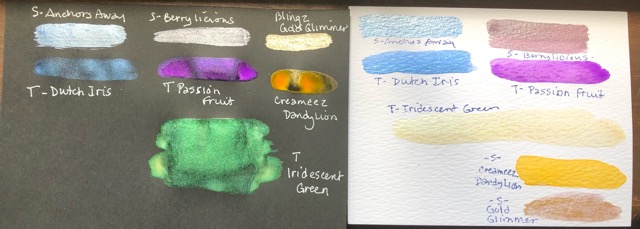 S-Anchors Away
S-Berrylicious
Blingz
Gold Glimmer
T-Dutch Iris
T Passion
Fruit
Creameez
Dandylion
T
Iridescent
Green
S-Anchors Away
S-Berrylicious
T-Dutch Iris
T-Passion Fruit
T-Iridescent Green
-S-
Creameez
Dandylion
-S-
Gold
Glimmer